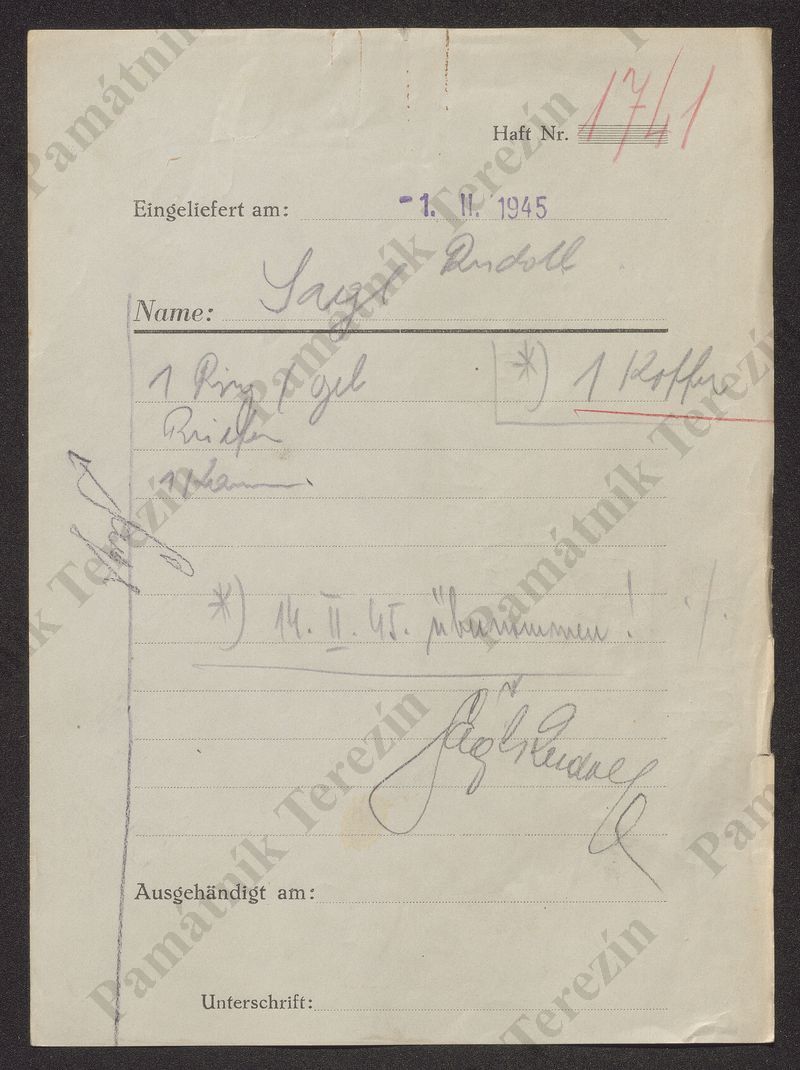 Haft Nr. 1741
Eingeliefert am: -1. II. 1945
Name: Saigl Rudolf
1 Ring gel
*) 1 Koffer
1 Kamm
*) 14. II. 45. übernommen!
Rudolf
Ausgehändigt am:
Unterschrift:
Památník Terezín